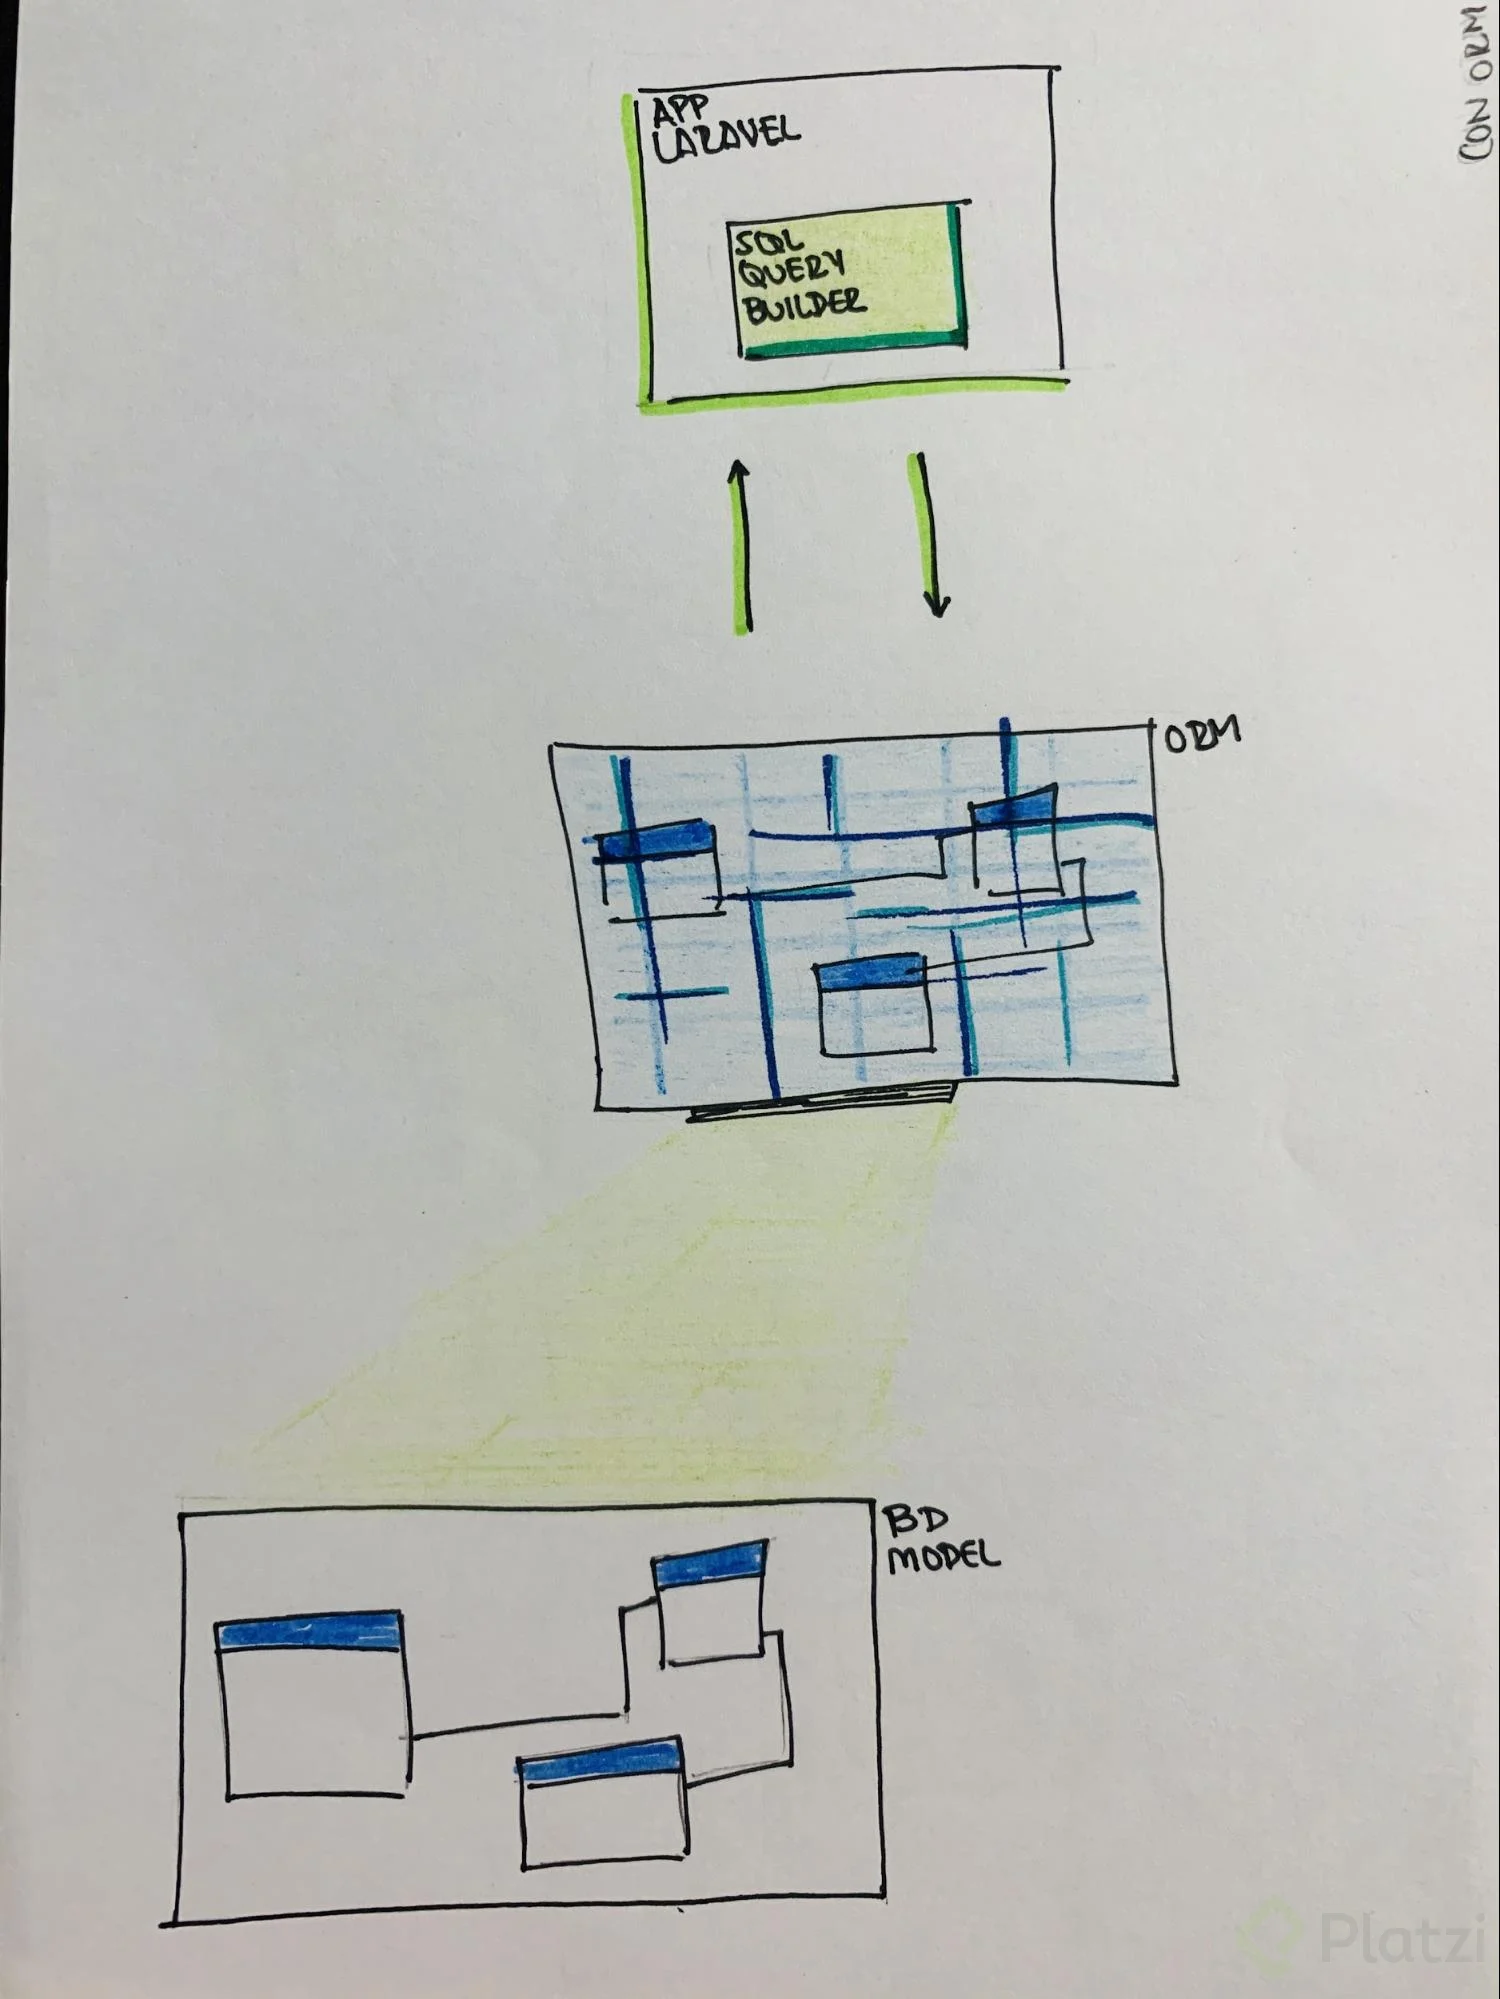 CON ORM
APP
LARAVEL
SQL
QUERY
BUILDER
ORM
BD
MODEL
Platzi